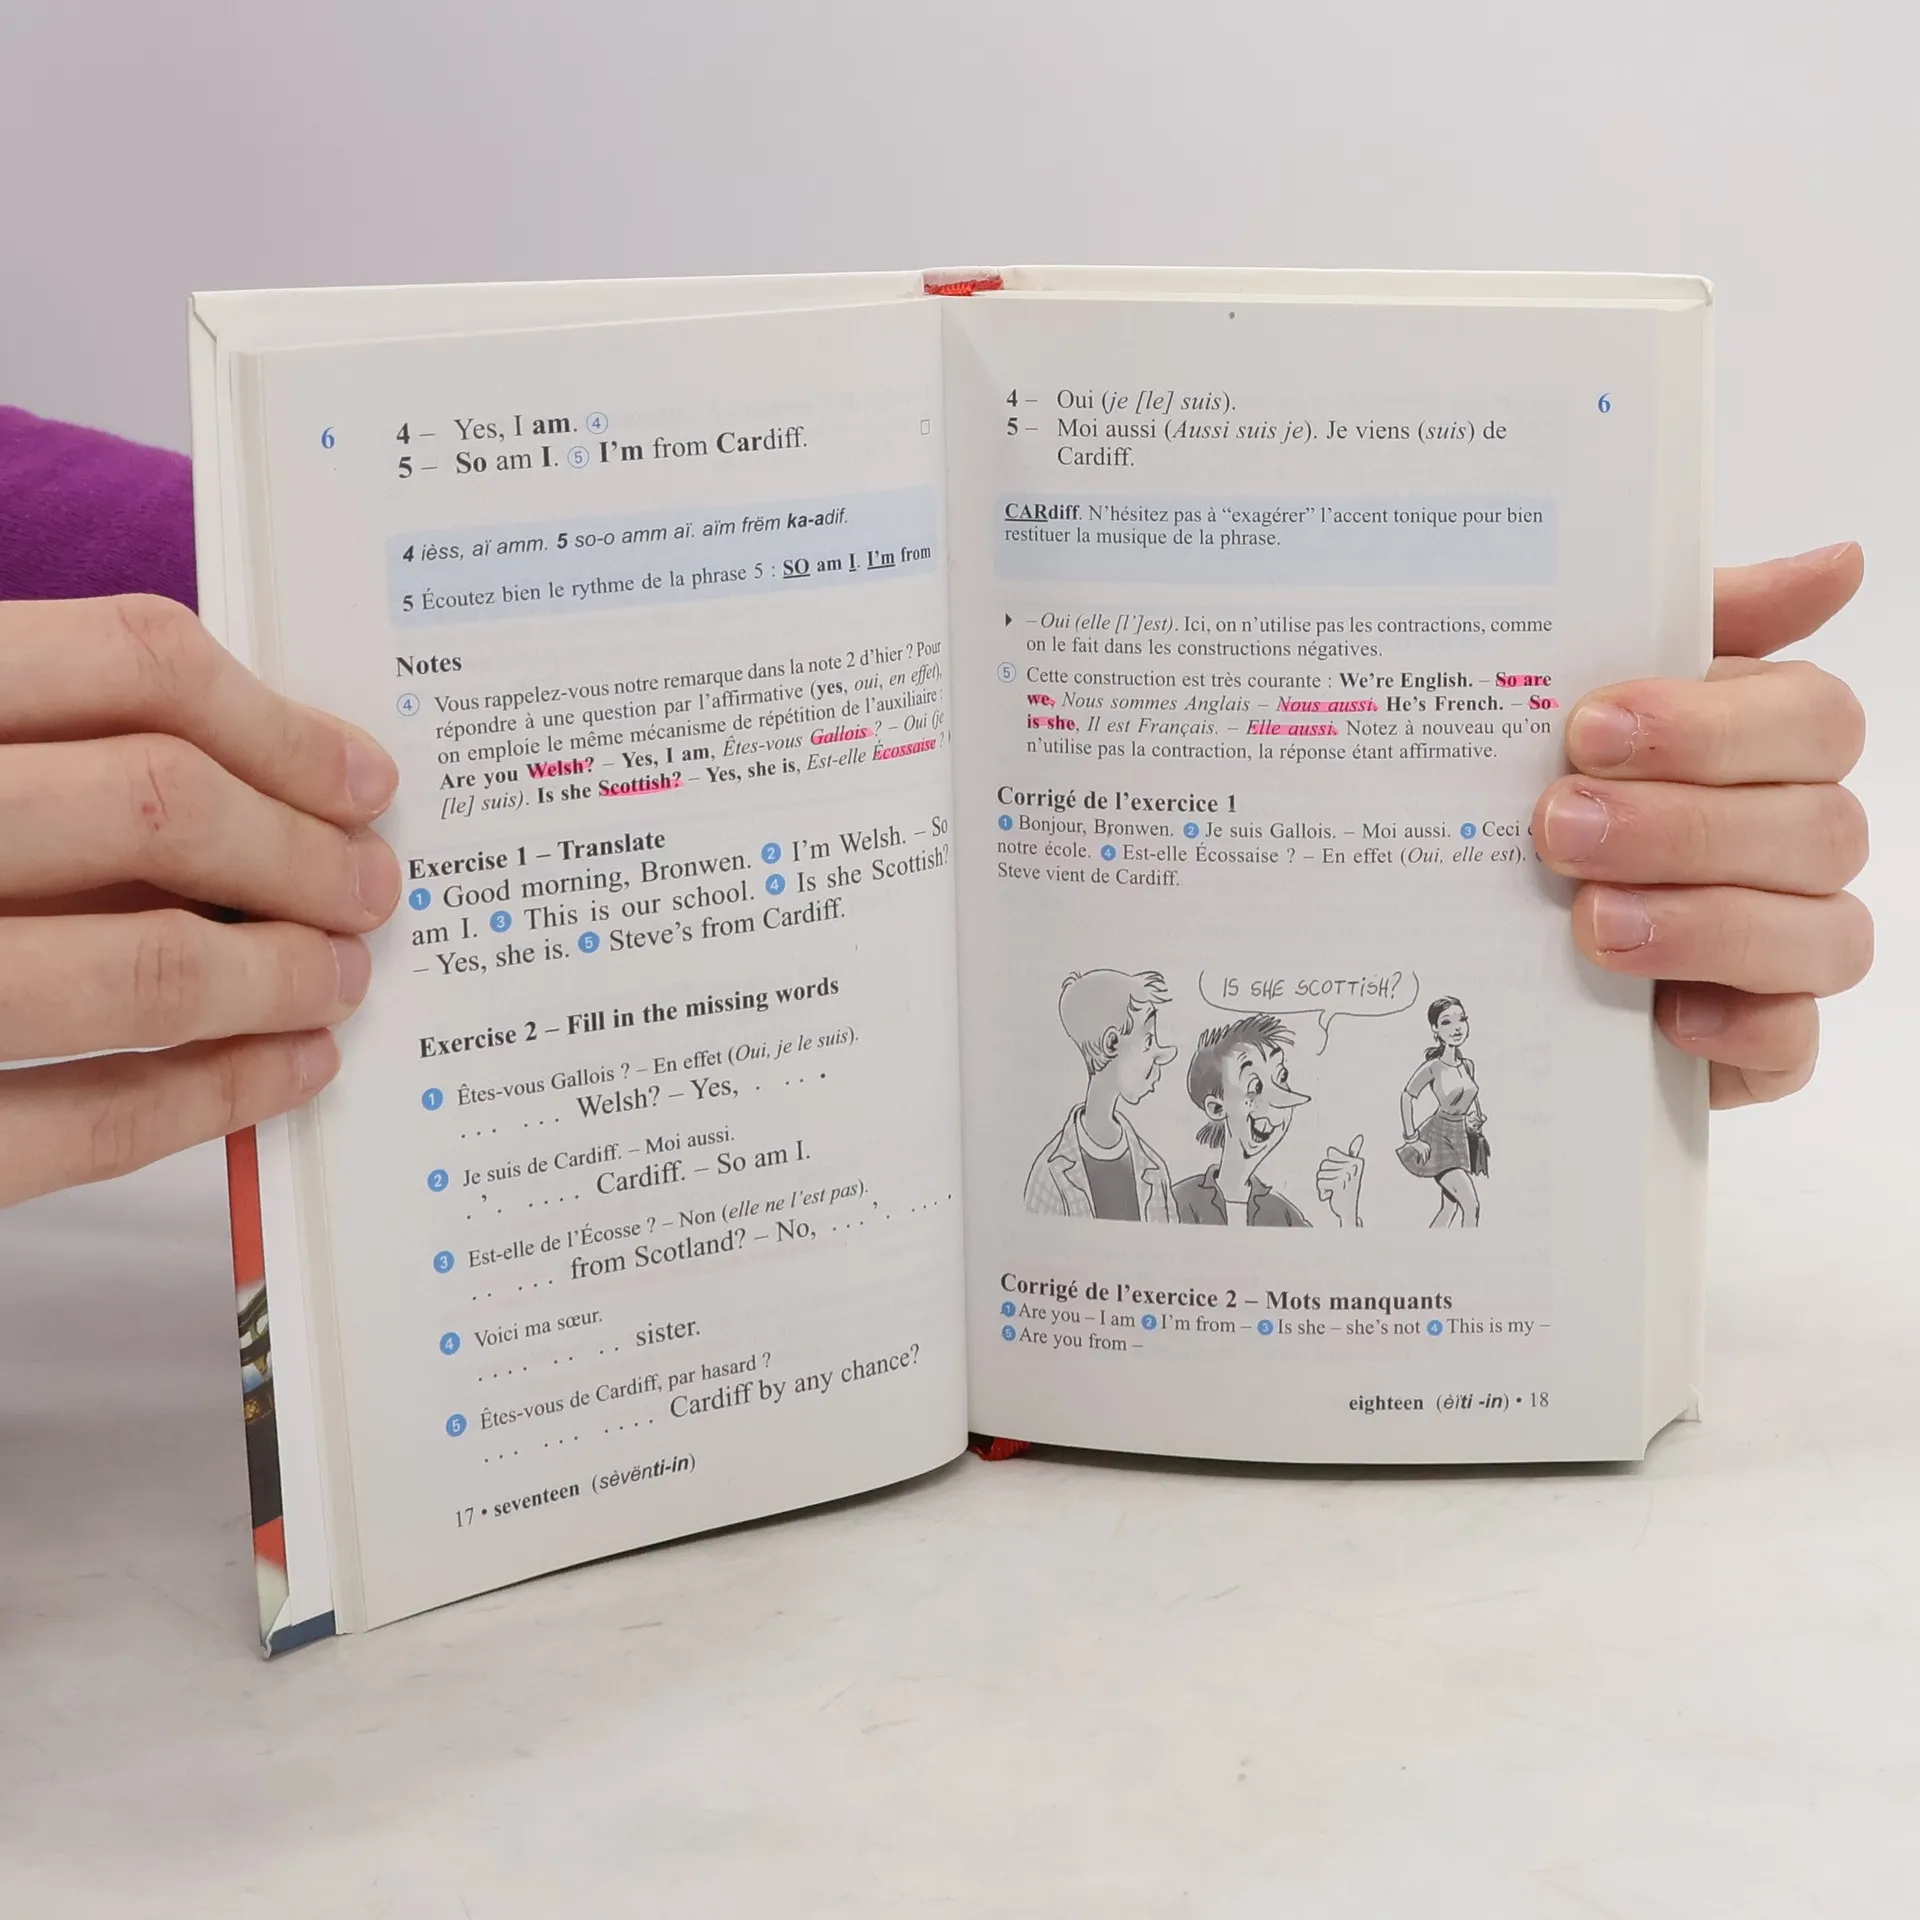 6
4 – Yes, I am. ④
5 – So am I. ⑤ I'm from Cardiff.
4 ièss, aï amm. 5 so-o amm aï. aïm frëm ka-adif.
5 Écoutez bien le rythme de la phrase 5 : SO am I. I'm from
Notes
④ Vous rappelez-vous notre remarque dans la note 2 d'hier ? Pour
répondre à une question par l'affirmative (yes, oui, en effet),
on emploie le même mécanisme de répétition de l'auxiliaire :
Are you Welsh? – Yes, I am, Êtes-vous Gallois ? – Oui (je
[le] suis). Is she Scottish? – Yes, she is, Est-elle Écossaise ?
Exercise 1 – Translate
❶ Good morning, Bronwen. ❷ I'm Welsh. – So
am I. ❸ This is our school. ❹ Is she Scottish?
– Yes, she is. ❺ Steve's from Cardiff.
Exercise 2 – Fill in the missing words
❶ Êtes-vous Gallois ? – En effet (Oui, je le suis).
... ... Welsh? – Yes, . .. .
❷ Je suis de Cardiff. – Moi aussi.
.'. .... Cardiff. – So am I.
❸ Est-elle de l'Écosse ? – Non (elle ne l'est pas).
.. ... from Scotland? – No, ...'. ...
❹ Voici ma sœur.
.... .. .. sister.
❺ Êtes-vous de Cardiff, par hasard ?
... ... .... Cardiff by any chance?
17 • seventeen (sèvënti-in)
4 – Oui (je [le] suis).
6
5 – Moi aussi (Aussi suis je). Je viens (suis) de
Cardiff.
CARdiff. N'hésitez pas à “exagérer” l'accent tonique pour bien
restituer la musique de la phrase.
– Oui (elle [l']est). Ici, on n'utilise pas les contractions, comme
on le fait dans les constructions négatives.
⑤ Cette construction est très courante : We're English. – So are
we, Nous sommes Anglais – Nous aussi. He's French. – So
is she, Il est Français. – Elle aussi. Notez à nouveau qu'on
n'utilise pas la contraction, la réponse étant affirmative.
Corrigé de l'exercice 1
❶ Bonjour, Bronwen. ❷ Je suis Gallois. – Moi aussi. ❸ Ceci
notre école. ❹ Est-elle Écossaise ? – En effet (Oui, elle est).
Steve vient de Cardiff.
IS SHE SCOTTISH?
Corrigé de l'exercice 2 – Mots manquants
❶ Are you – I am ❷ I'm from – ❸ Is she – she's not ❹ This is my –
❺ Are you from –
eighteen (èïti -in) • 18